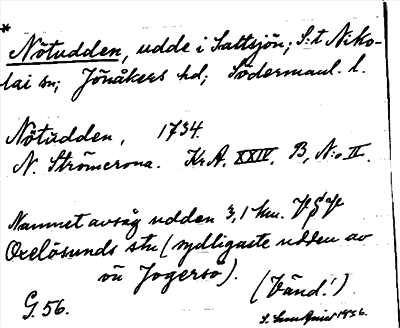 *
Nötudden, udde i Saltsjön; S:t Niko-
lai sn; Jönåkers hd; Södermanl. l.
Nötudden, 1734.
N. Strömcrona. Kr.A. XXIV. B, N:o II.
Namnet avsåg udden 3,1 km.
Oxelösunds stn (sydligaste udden av
ön Jogersö).
(Vänd!)
G. 56.
1936.